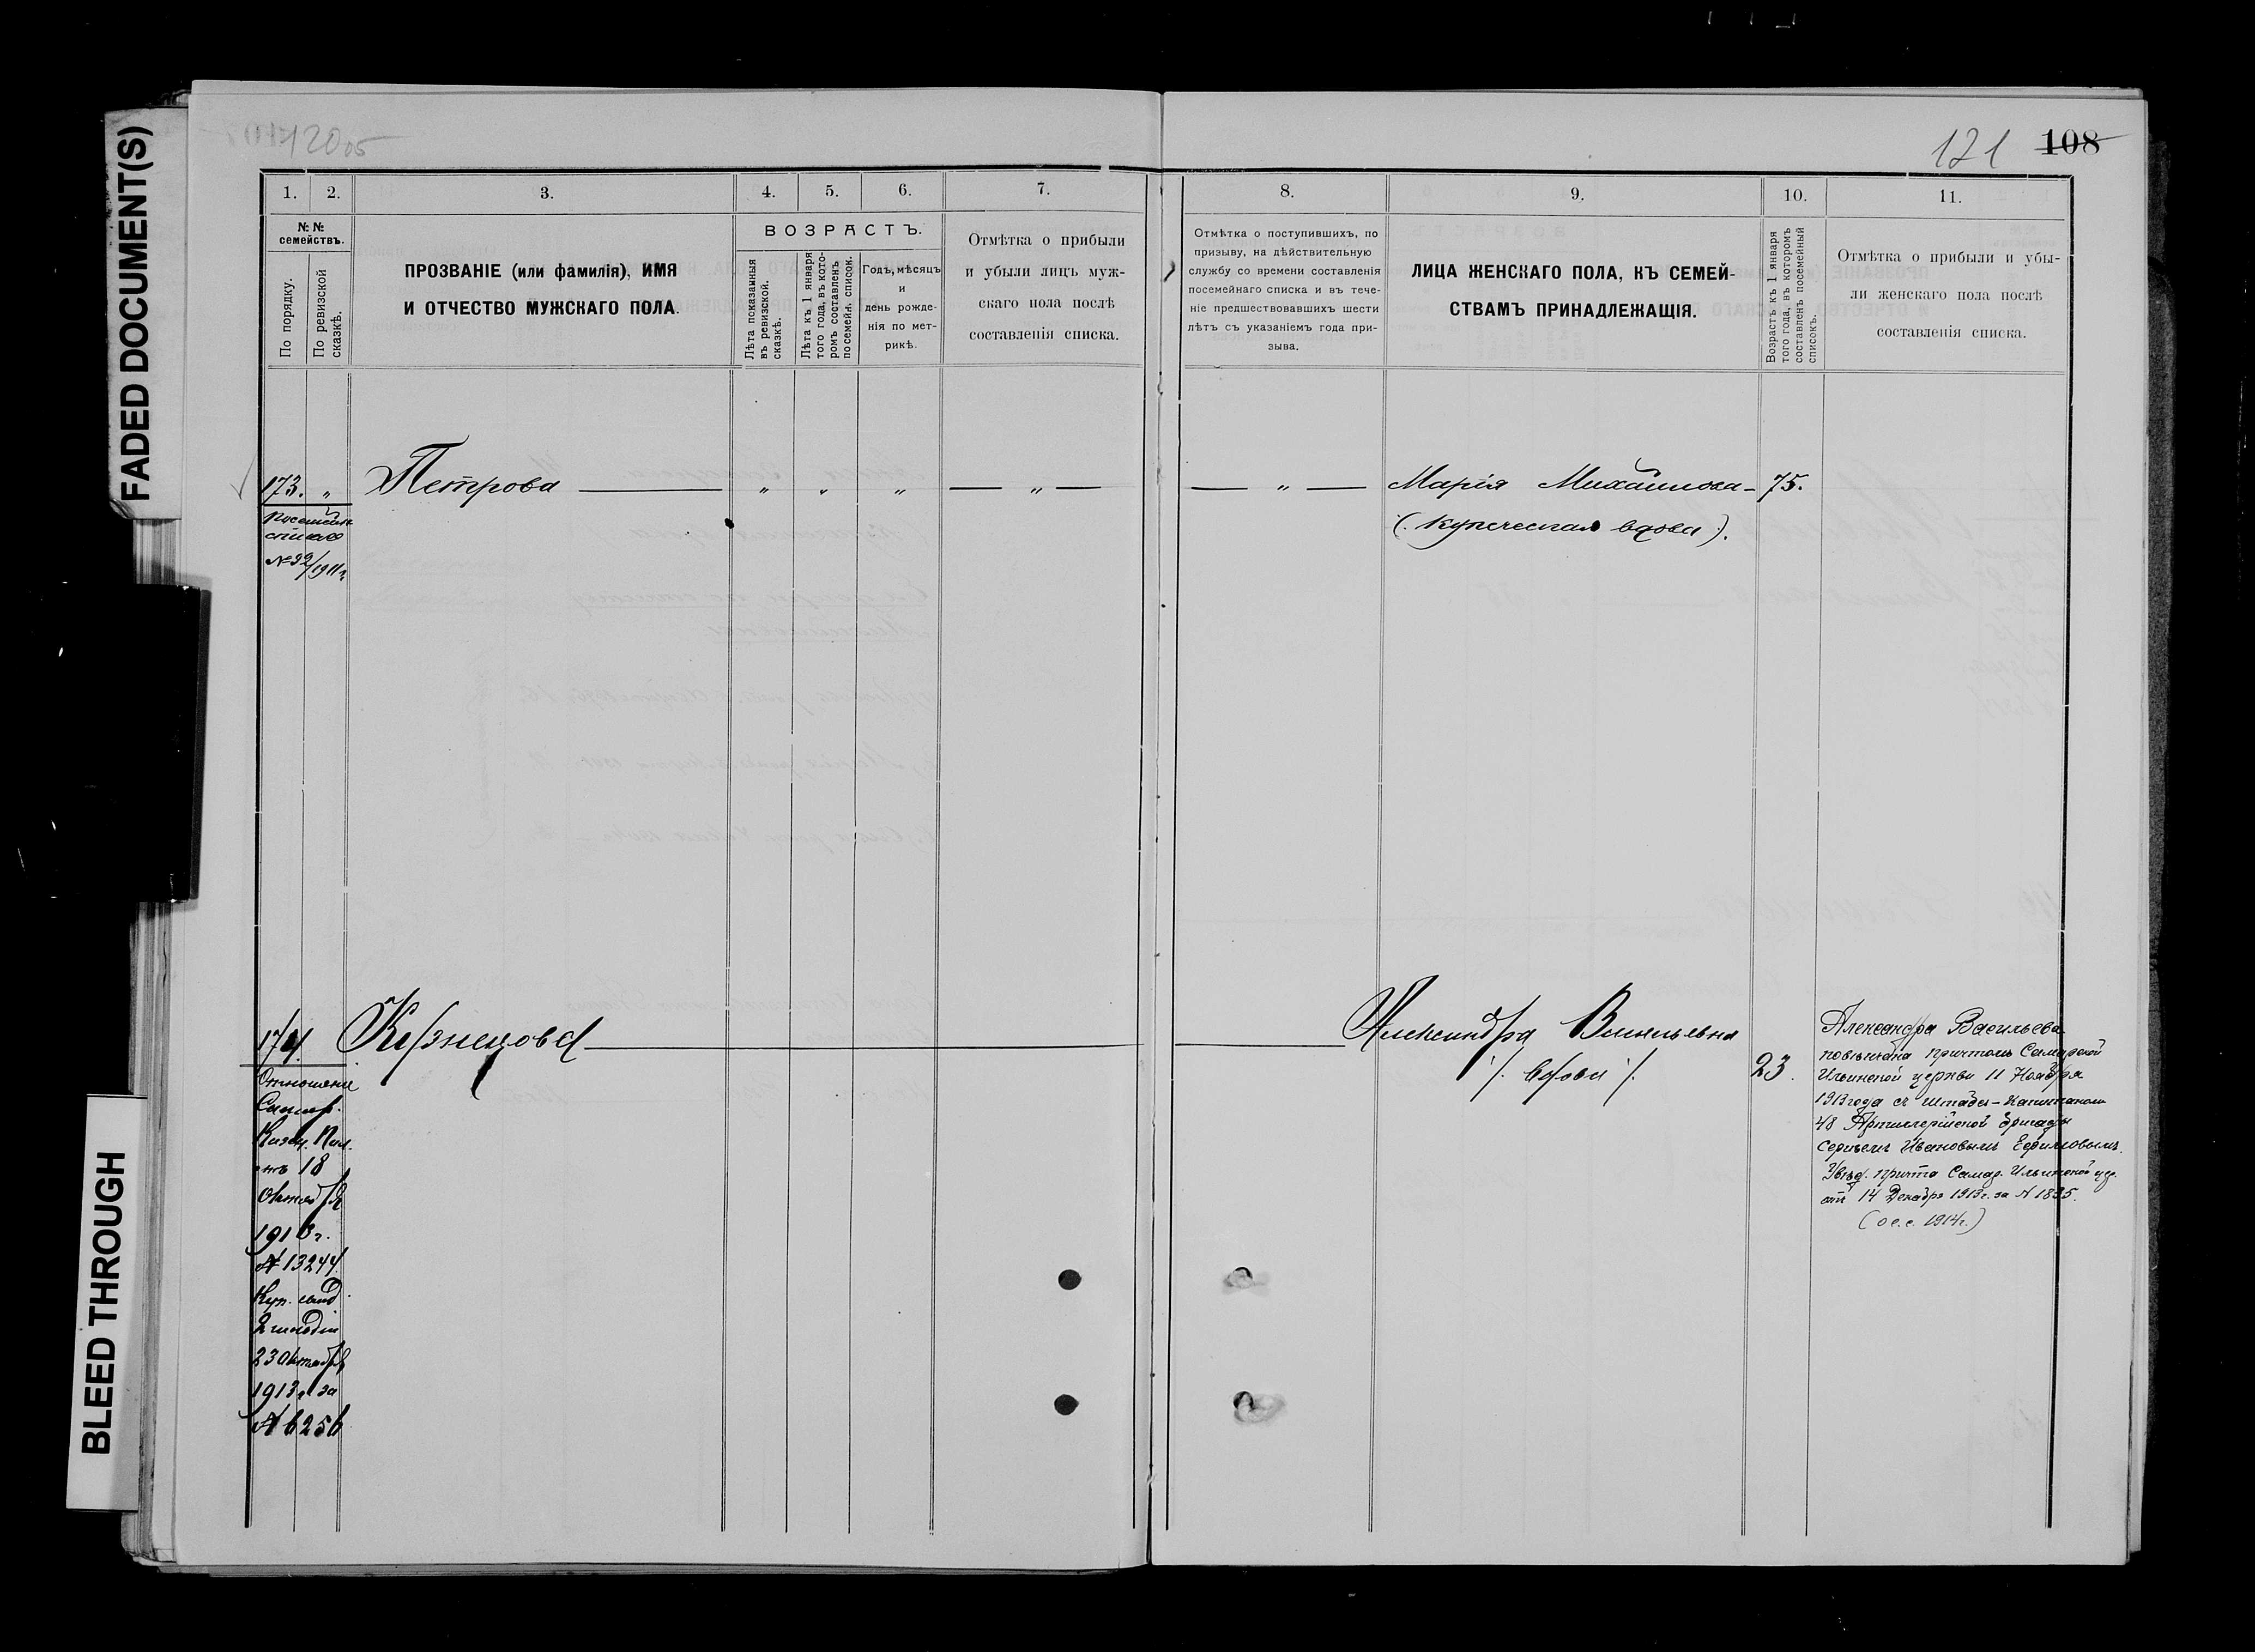 FADED DOCUMENT(S)
BLEED THROUGH
2005
121 108
1. 2. 3. 4. 5. 6. 7. 8. 9. 10. 11.
№ №
семействъ.
По порядку.
По ревизской
сказкѣ.
ПРОЗВАНІЕ (или фамилія), ИМЯ
И ОТЧЕСТВО МУЖСКАГО ПОЛА.
ВОЗРАСТЪ.
Лѣта показанныя
въ ревизской
сказкѣ.
Лѣта къ 1 января
того года, въ кото-
ромъ составленъ
посемейн. список.
Годъ, мѣсяцъ
и
день рожде-
нія по мет-
рикѣ.
Отмѣтка о прибыли
и убыли лицъ муж-
скаго пола послѣ
составленія списка.
Отмѣтка о поступившихъ, по
призыву, на дѣйствительную
службу со времени составленія
посемейнаго списка и въ тече-
ніе предшествовавшихъ шести
лѣтъ съ указаніемъ года при-
зыва.
ЛИЦА ЖЕНСКАГО ПОЛА, КЪ СЕМЕЙ-
СТВАМЪ ПРИНАДЛЕЖАЩІЯ.
Возрастъ къ 1 января
того года, въ которомъ
составленъ посемейный
списокъ.
Отмѣтка о прибыли и убы-
ли женскаго пола послѣ
составленія списка.
173. „ Петрова — „ „ „ — „ — — „ — Марія Михайлова - 75.
(Купеческая вдова).
списка
№ 32/1911г.
174. Кузнецова — Александра Васильевна
/. Вдова /. 23.
Отношеніе
Самар.
Казен. Пал.
отъ 18
октября
1913г.
№ 13244.
Куп. свид.
2 гильдіи
23 октября
1913г. за
№ 6256
Александра Васильева
повѣнчана причтомъ Самарской
Ильинской церкви 11 Ноября
1913 года съ Штабсъ-Капитаномъ
48 Артиллерійской бригады
Сергѣемъ Ивановымъ Ефимовымъ.
причта Самар. Ильинской цер.
отъ 14 Декабря 1913г. за № 1835.
1914г.)